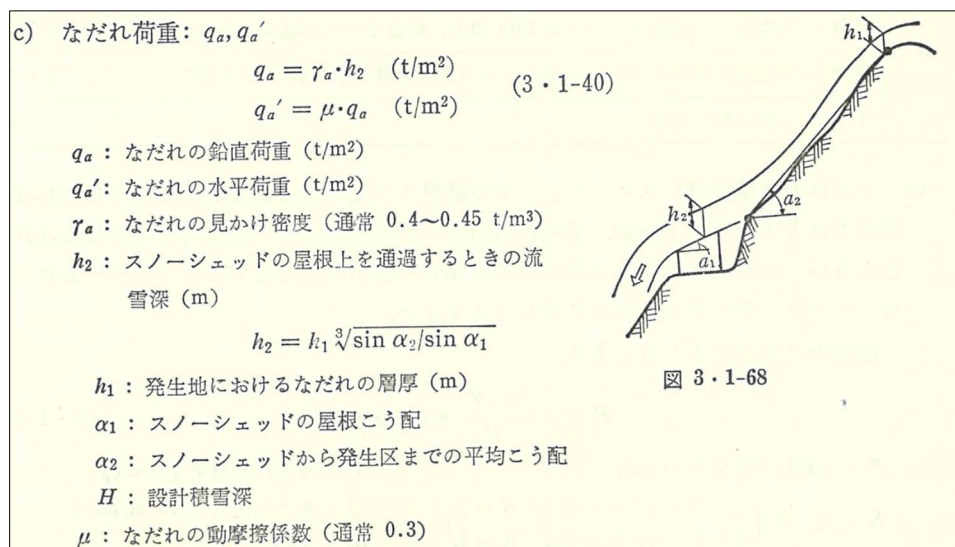 c) なだれ荷重: qₐ, qₐ′
qₐ = γₐ·h₂ (t/m²)
(3・1-40)
qₐ′ = μ·qₐ (t/m²)
qₐ : なだれの鉛直荷重 (t/m²)
qₐ′: なだれの水平荷重 (t/m²)
γₐ : なだれの見かけ密度 (通常 0.4~0.45 t/m³)
h₂ : スノーシェッドの屋根上を通過するときの流
雪深 (m)
h₂ = h₁ ∛(sin α₂/sin α₁)
h₁ : 発生地におけるなだれの層厚 (m)
α₁ : スノーシェッドの屋根こう配
α₂ : スノーシェッドから発生区までの平均こう配
H : 設計積雪深
μ : なだれの動摩擦係数 (通常 0.3)
h₁
h₂
α₂
α₁
図 3・1-68